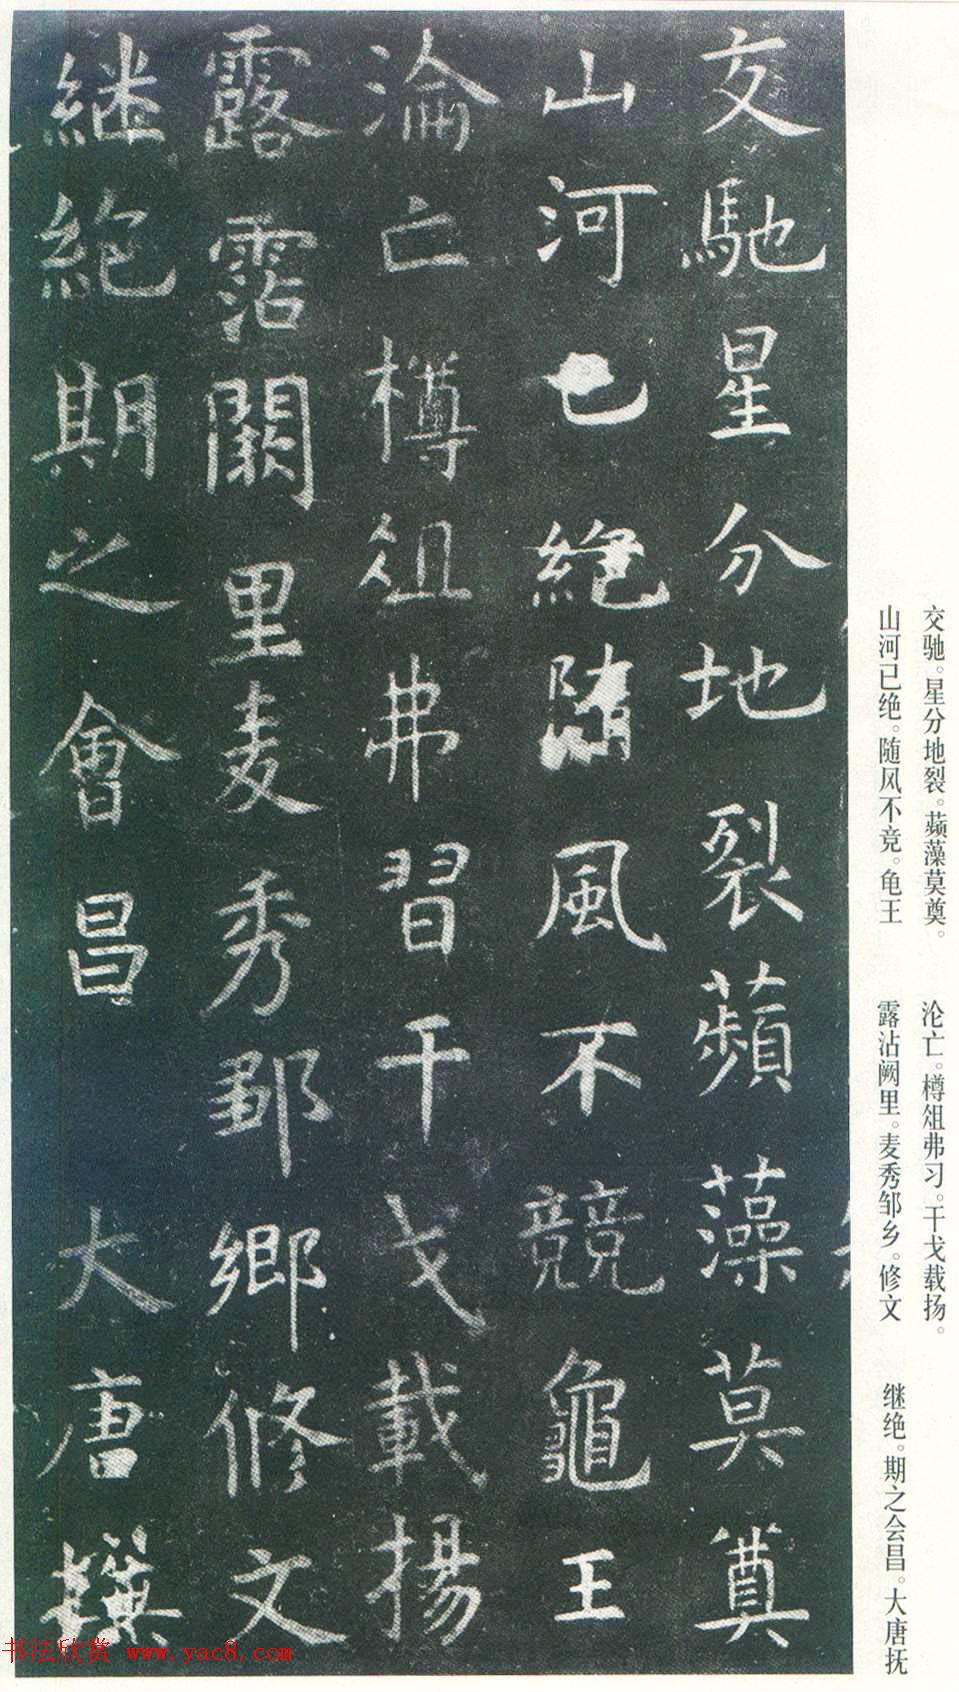 交驰。星分地裂。蘋藻莫奠。
山河已绝。随风不竞。龟王
沦亡。樽俎弗习。干戈载扬。
露沾阙里。麦秀邹乡。修文
继绝。期之会昌。大唐抚
交馳星分地裂蘋藻莫奠
山河已絕隨風不競龜王
淪亡樽俎弗習干戈載揚
露霑闕里麦秀鄒鄉修文
継絕期之會昌 大唐撫
书法欣赏 www.yac8.com